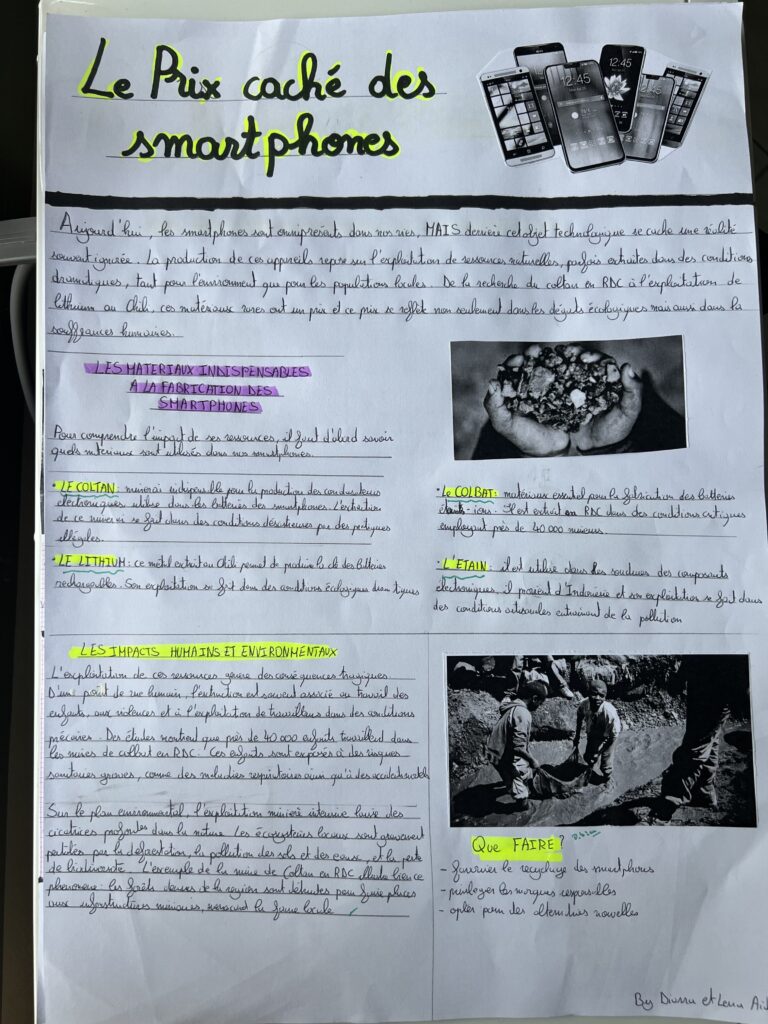 Le Prix caché des
smartphones
12:45
12:45
Aujourd'hui, les smartphones sont omniprésents dans nos vies, MAIS derrière cet objet technologique se cache une réalité
souvent ignorée. La production de ces appareils repose sur l'exploitation de ressources naturelles, parfois extraites dans des conditions
dramatiques, tant pour l'environment que pour les populations locales. De la recherche du coltan en RDC à l'exploitation de
lithium au Chili, ces matériaux rares ont un prix et ce prix se reflète non seulement dans les dégâts écologiques mais aussi dans la
souffrances humaines.
LES MATERIAUX INDISPENSABLES
A LA FABRICATION DES
SMARTPHONES
Pour comprendre l'impact de ses ressources, il faut d'abord savoir
quels matériaux sont utilisés dans nos smartphones.
· LE COLTAN: minerai indispensable pour la production des condensateurs
électroniques utilisé dans les batteries des smartphones. L'extraction
de ce minerai se fait dans des conditions désastreuses par des pratiques
illégales.
· LE LITHIUM: ce métal extrait au Chili permet de produire la clé des batteries
rechargeables. Son exploitation se fait dans des conditions écologiques
· Le COLBAT: matériaux essentiel pour la fabrication des batteries
ions. Il est extrait en RDC dans des conditions critiques
employant près de 40 000 mineurs.
· L'ETAIN: il est utilisé dans les soudures des composants
électroniques, il provient d'Indonésie et son exploitation se fait dans
des conditions artisanales entraînant de la pollution
LES IMPACTS HUMAINS ET ENVIRONMENTAUX
L'exploitation de ces ressources génère des conséquences tragiques.
D'un point de vue humain, l'extraction est souvent associé au travail des
enfants, aux violences et à l'exploitation de travailleurs dans des conditions
précaires. Des études montrent que près de 40 000 enfants travaillent dans
les mines de colbat en RDC. Ces enfants sont exposés à des risques
sanitaires graves, comme des maladies respiratoires ainsi qu'à des accidents
Sur le plan environmental, l'exploitation minière intensive laisse des
cicatrices profondes dans la nature. Les écosystèmes locaux sont gravement
par la déforestation, la pollution des sols et des eaux, et la perte
de biodiversité. L'exemple de la mine de Coltan en RDC illustre bien ce
phénomène: les forêts denses de la région sont détruites pour faire places
aux infrastructures minières, menaçant la faune locale
Que FAIRE?
- favoriser le recyclage des smartphones
- privilégier les marques responsables
- opter pour des alternatives nouvelles
By Diarra et Lena